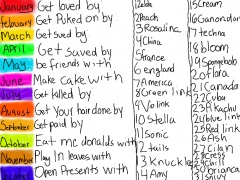 January Get loved by
February Get Puked on by
March Get sued by
April Get saved by
May be friends with
June Make cake with
July Get killed by
August Get your hair done by
September Get paid by
October Eat mc donalds with
November Play In leaves with
December Open Presents with
1 Zelda
2 Peach
3 Rosalina
4 China
5 france
6 england
7 America
8 Green link
9 Vio link
10 stella
11 Sonic
12 tails
13 knuckles
14 Amy
15 Cream
16 Ganondorf
17 techna
18 bloom
19 Spongebob
20 flora
21 Canada
22 Cuba
23 Pikachu
24 blue link
25 Red link
26 Ash
27 Cilan
28
29 chili
30 brianna
31 Savvy